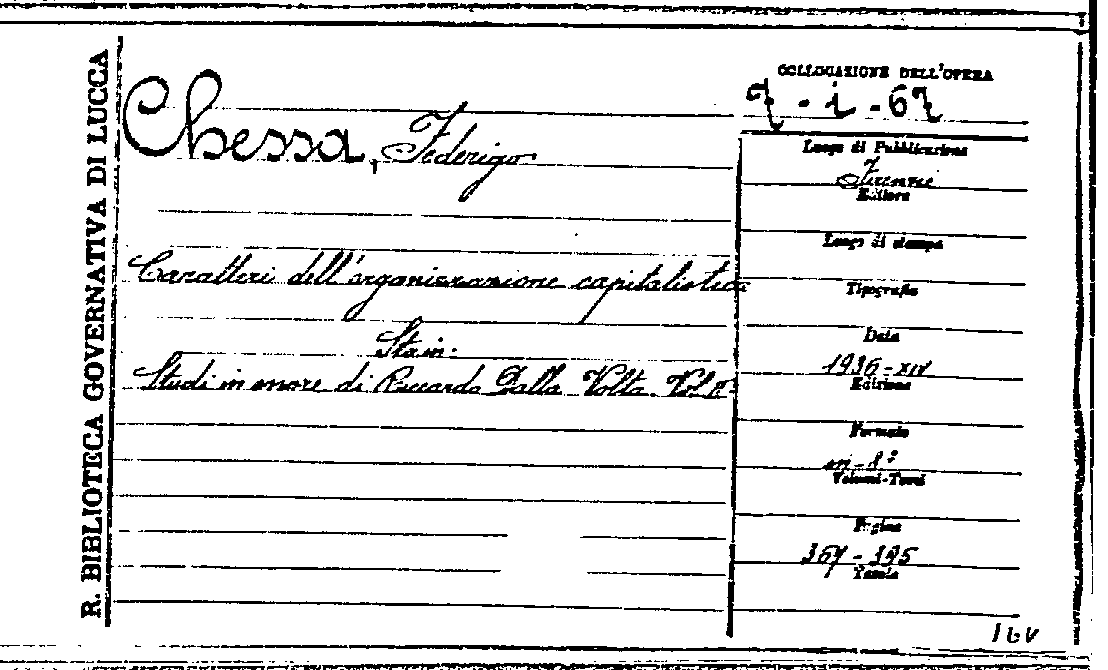 R. BIBLIOTECA GOVERNATIVA DI LUCCA
Chessa, Federigo
Caratteri dell'organizzazione capitalistica
Sta in:
Studi in onore di Riccardo Dalla Volta. Vol.
COLLOCAZIONE DELL'OPERA
7 - i - 67
Luogo di Pubblicazione
Firenze
Editore
Luogo di stampa
Tipografia
Data
1936-XIV
Edizione
Formato
in-8°
Volumi-Tomi
Pagine
367-395
Tavole